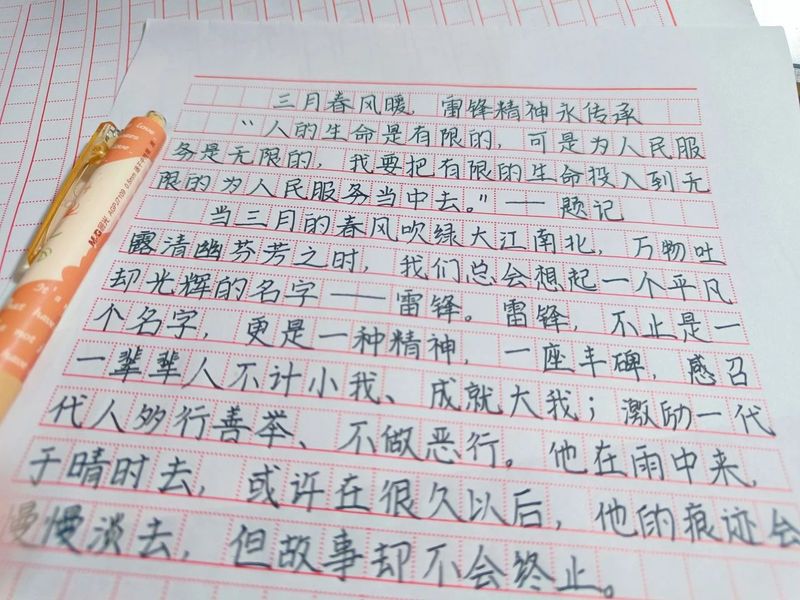 三月春风暖 雷锋精神永传承
“人的生命是有限的，可是为人民服
务是无限的，我要把有限的生命投入到无
限的为人民服务当中去。”——题记
当三月的春风吹绿大江南北，万物吐
露清幽芬芳之时，我们总会想起一个平凡
却光辉的名字——雷锋。雷锋，不止是一
个名字，更是一种精神，一座丰碑，感召
一辈辈人不计小我、成就大我；激励一代
代人多行善举、不做恶行。他在雨中来，
于晴时去，或许在很久以后，他的痕迹会
慢慢淡去，但故事却不会终止。
M&G 晨光 AGP17109 0.5mm